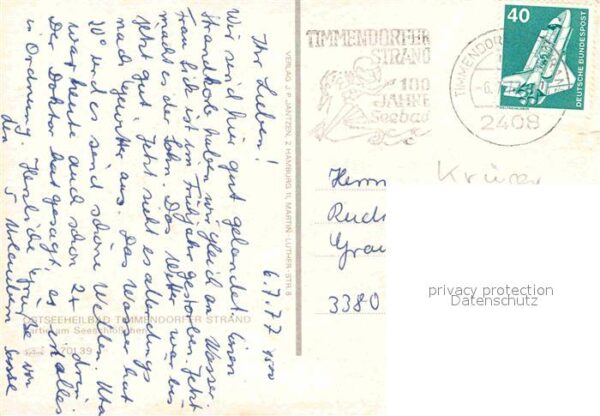 6.7.77
Ihr Lieben!
Wir sind hier gut gelandet. Einen
Strandkorb haben wir gleich am Wasser.
Frau Liske ist im Frühjahr gestorben. Jetzt
macht es der Sohn. Das Wetter war bis
jetzt gut. Jetzt sieht es allerdings
nach Gewitter aus. Das Wasser hat
20° und es sind schöne Wellen. Uta
war heute auch schon 2x drin.
Der Doktor hat gesagt, es ist alles
in Ordnung. Herzliche Grüße von
den 5 Urlaubern
VERLAG J. P. JANTZEN, 2 HAMBURG 11, MARTIN-LUTHER-STR. 8
OSTSEEHEILBAD TIMMENDORFER STRAND
Partie am Seeschlößchen
TIMMENDORFER
STRAND
100
JAHRE
Seebad
TIMMENDORF
2408
40
DEUTSCHE BUNDESPOST
Krüger
Herrn
Rud
Grau
3380
privacy protection
Datenschutz